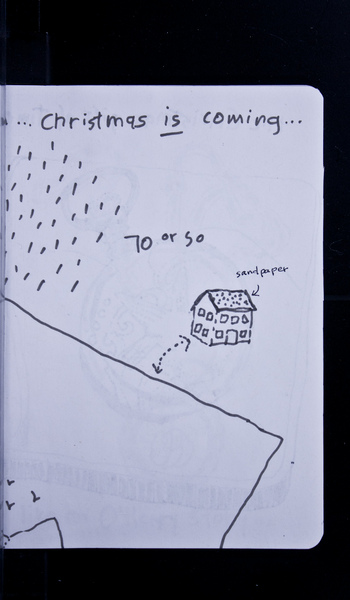 ... Christmas is coming...
70 or so
sandpaper